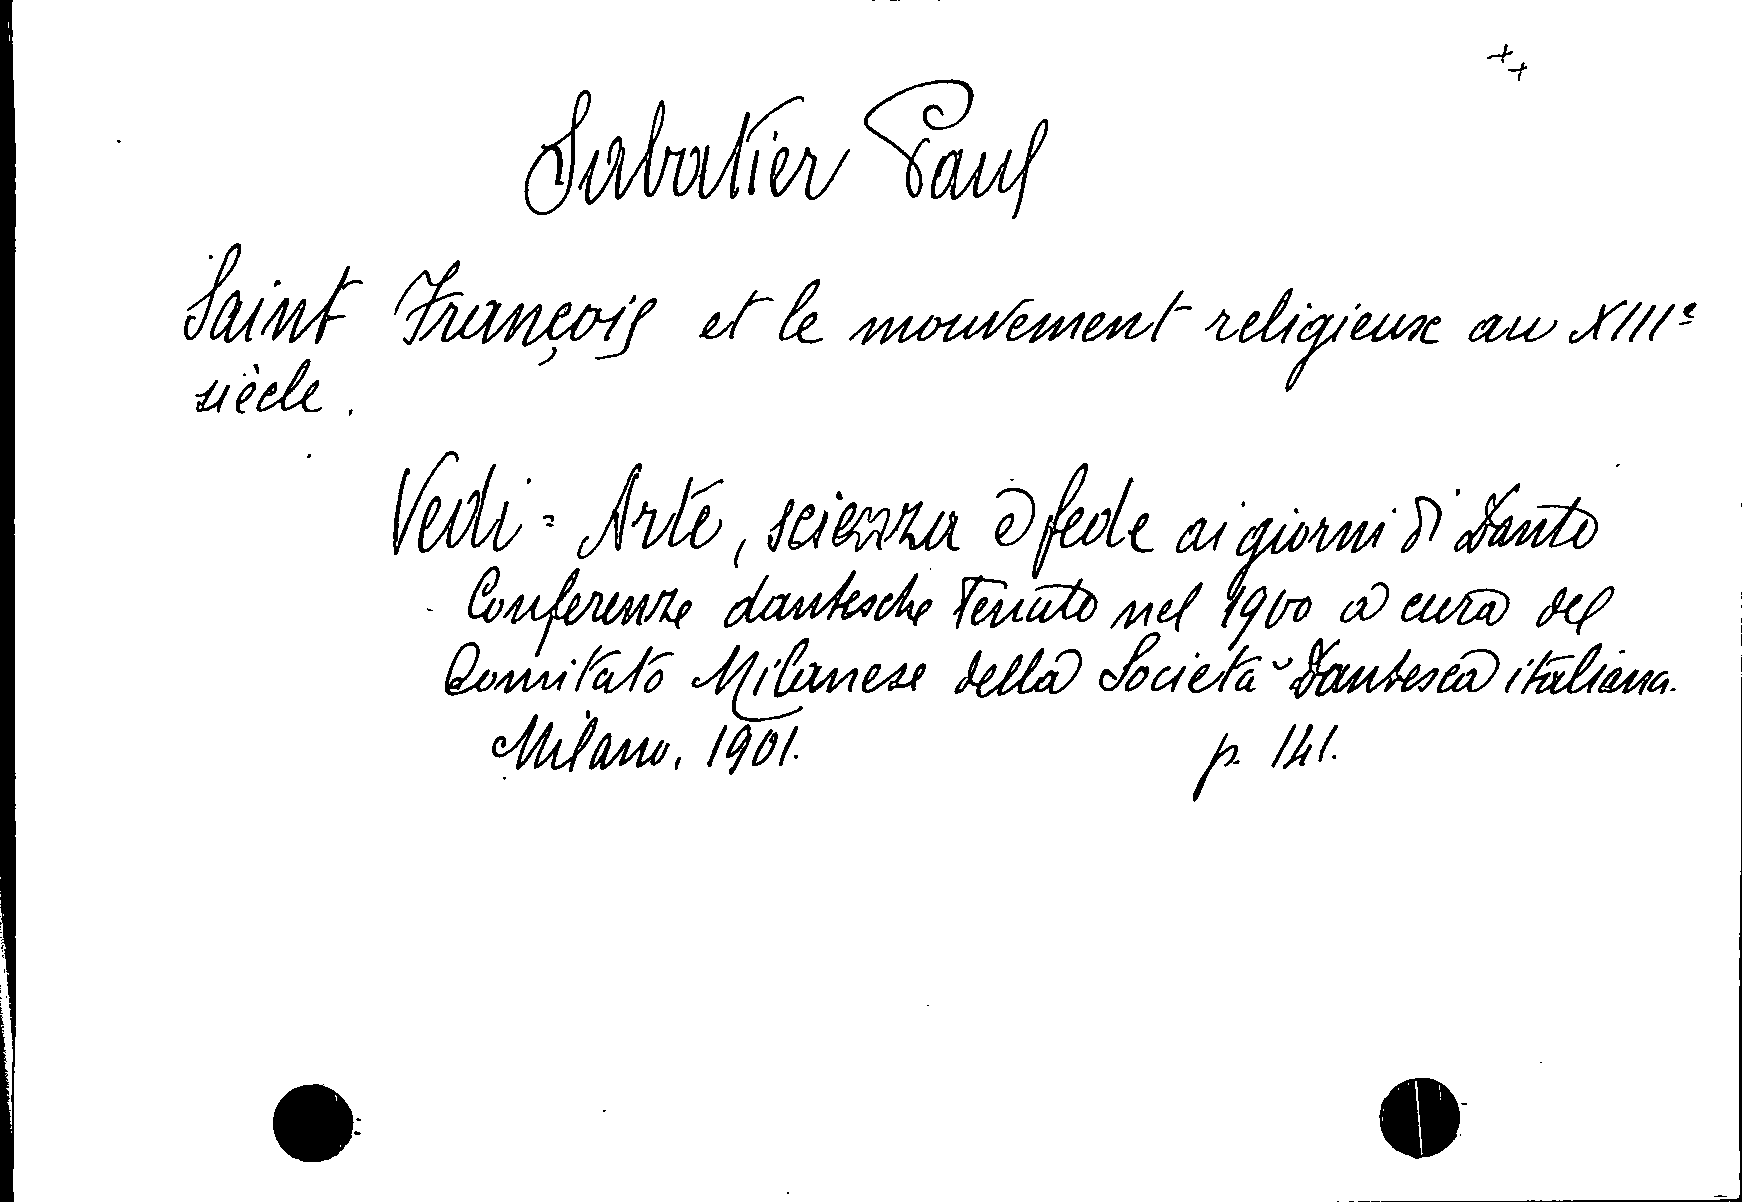 Sabatier Paul
Saint François et le mouvement religieux au XIIIe
siècle.
Vedi = Arte, scienza e fede ai giorni di Dante
Conferenze dantesche tenute nel 1900 a cura del
Comitato Milanese della Società Dantesca italiana.
Milano, 1901. p. 141.